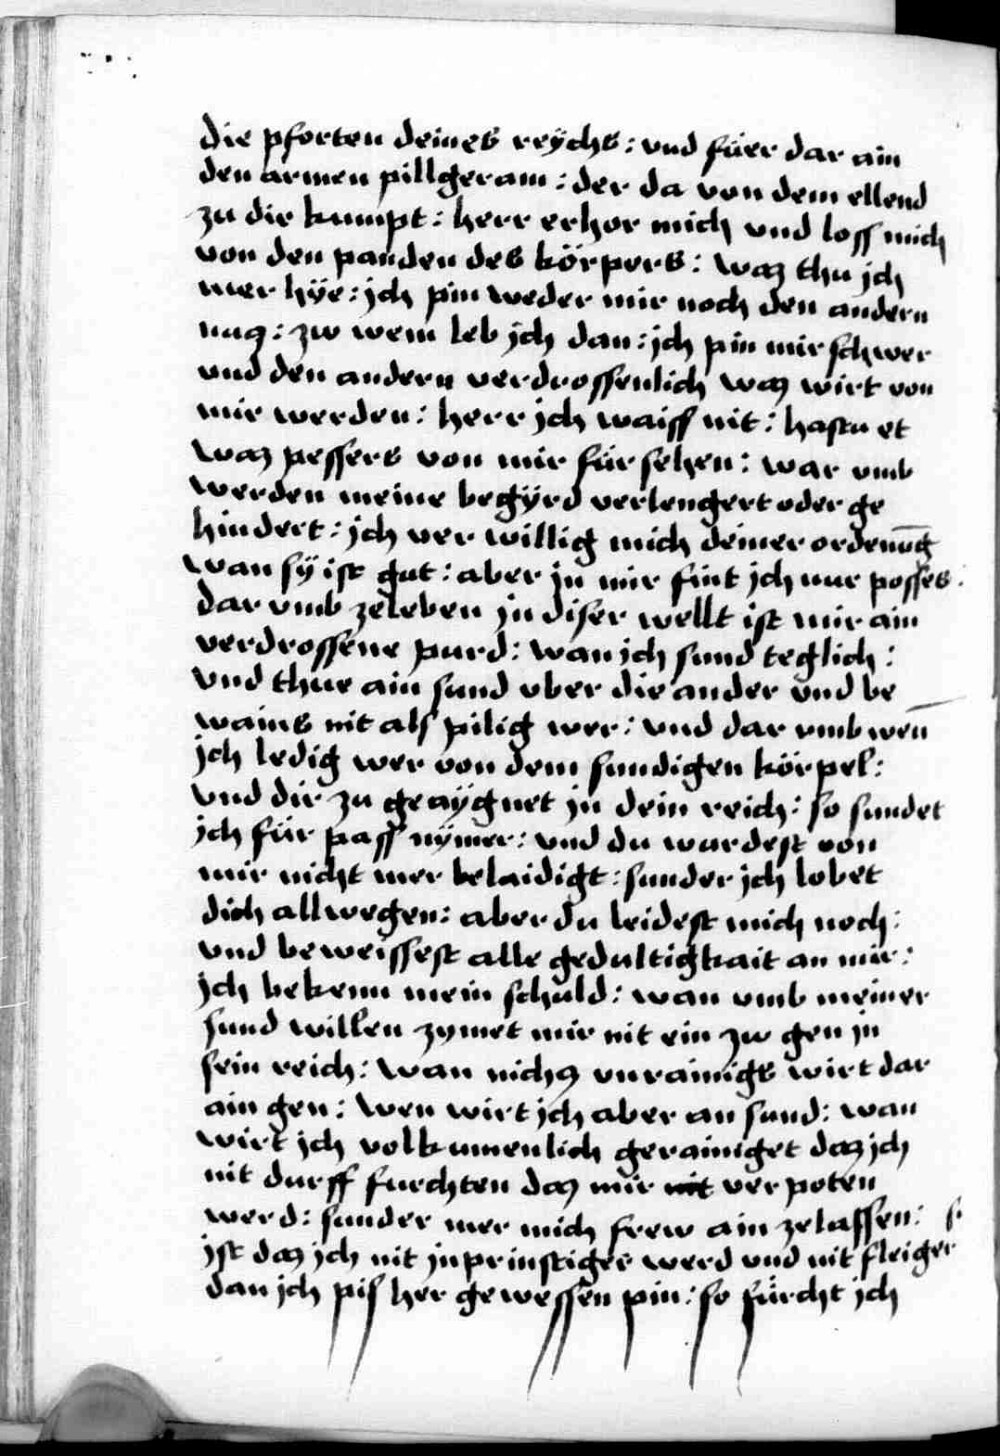 die pforten deines reÿchs : vnd füer dar ain
den armen pillgeram : der da von dem ellend
zu dir kumpt : herr erhor mich vnd loss mich
von den panden des körpers : waz thu jch
mer hÿe : jch pin weder mir noch den andern
nucz : zw wem leb jch dan : jch pin mir schwer
vnd den andern verdrossenlich waz wirt von
mir werden : herr jch waiss nit : hastu et
waz pessers von mir für sehen : war vmb
werden meine begÿrd verlengert oder ge
hindert : jch ver willig mich deiner ordenūg
wan sÿ ist gut : aber jn mir fint jch nur posses :
dar vmb zeleben jn diser wellt ist mir ain
verdrossene purd : wan jch sund teglich :
vnd thue ain sund vber die ander vnd be
wains nit als pilig wer : vnd dar vmb wen̄
jch ledig wer von dem sundigen körpel :
vnd dir zu geaÿgnet jn dein reich : so sundet
jch für pass nÿmer : vnd du wurdest von
mir nicht mer belaidigt : sunder jch lobet
dich allwegen : aber du leidest mich noch :
vnd beweissest alle gedultigkait an mir :
jch bekenn mein schuld : wan vmb meiner
sund willen zymet mir nit ein zw gen jn
sein reich : wan nichcz vnrainigs wirt dar
ain gen : wen wirt jch aber an sund : wan
wirt jch volkumenlich gerainiget daz jch
nit durff furchten daz mir nit ver poten
werd : sunder mer mich frew ain zelassen : s.
jst daz jch nit jnprinstiger werd vnd nit fleiger
dan jch pis her gewessen pin : so fürcht jch